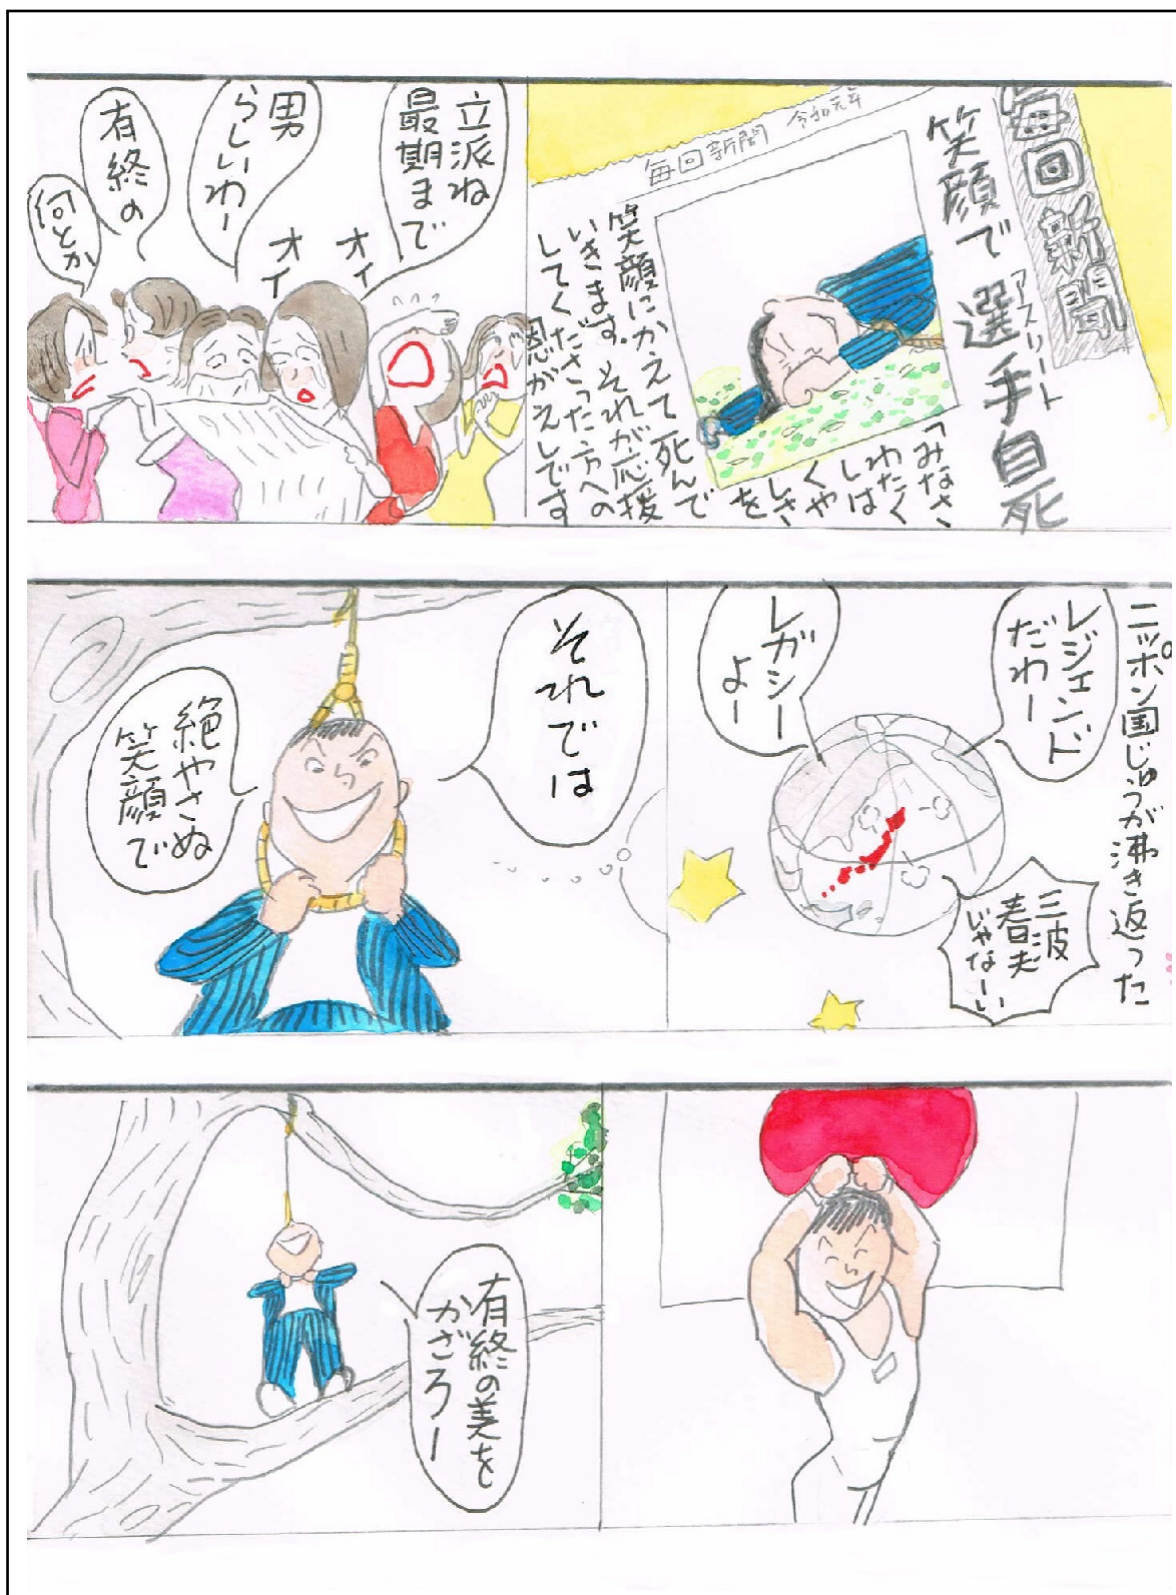 毎回新聞
アスリート
笑顔で選手自死
毎回新聞 令和元年
「みなさん
わたく
しは
くや
しさ
を
笑顔にかえて死んで
いきます。それが応援
してくださった方への
恩がえしです
立派ね
最期まで
オイ
オイ
男
らしいわー
有終の
何とか
ニッポン国じゅうが沸き返った
レジェンド
だわー
レガシー
よー
三波
春夫
じゃなーい
それでは
絶やさぬ
笑顔で
有終の美を
かざろー